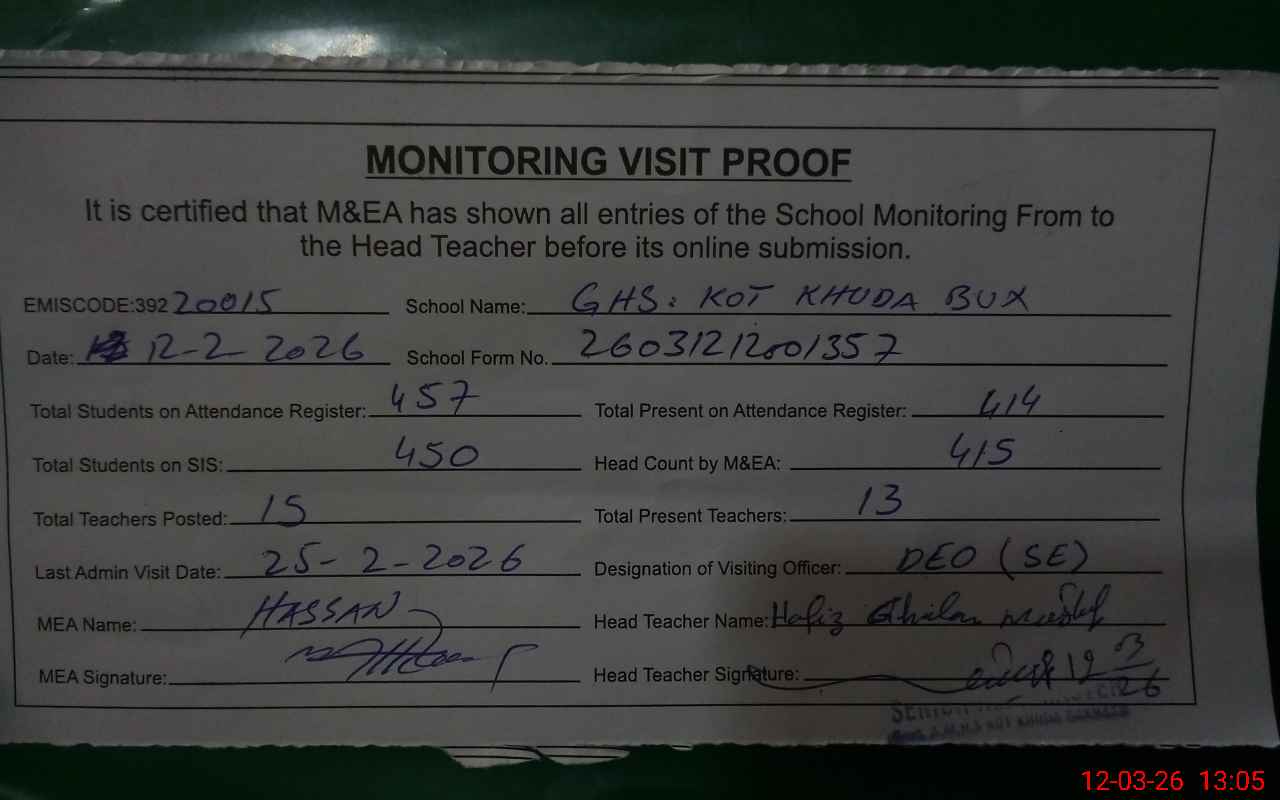 MONITORING VISIT PROOF
It is certified that M&EA has shown all entries of the School Monitoring From to
the Head Teacher before its online submission.
EMISCODE:39220015 School Name: GHS: KOT KHUDA BUX
Date: 12-2-2026 School Form No. 26031212001357
Total Students on Attendance Register: 457 Total Present on Attendance Register: 414
Total Students on SIS: 450 Head Count by M&EA: 415
Total Teachers Posted: 15 Total Present Teachers: 13
Last Admin Visit Date: 25-2-2026 Designation of Visiting Officer: DEO (SE)
MEA Name: HASSAN Head Teacher Name: Hafiz
MEA Signature: Head Teacher Signature:
12-03-26 13:05